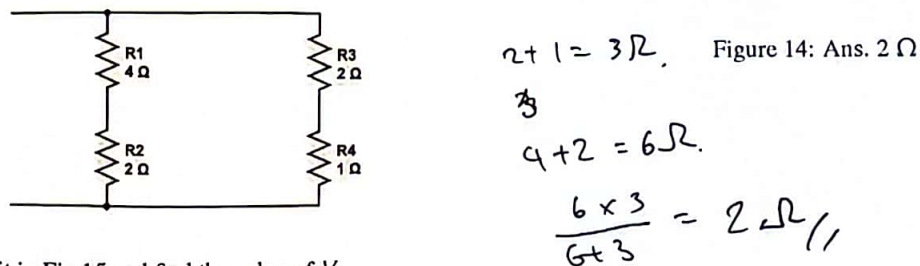 R1
4 Ω
R2
2 Ω
R3
2 Ω
R4
1 Ω
2 + 1 = 3Ω.
Figure 14: Ans. 2 Ω
4 + 2 = 6Ω.
6 × 3
6+3
= 2Ω //